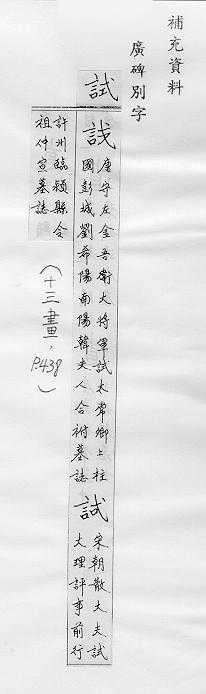 補充資料
廣碑別字
試
唐守左金吾衛大將軍試太常卿上柱
國彭城劉希陽南陽韓夫人合祔墓誌
試
宋朝散大夫試
大理評事前行
許州臨潁縣令
祖仲宣墓誌
(十三畫, P.438)